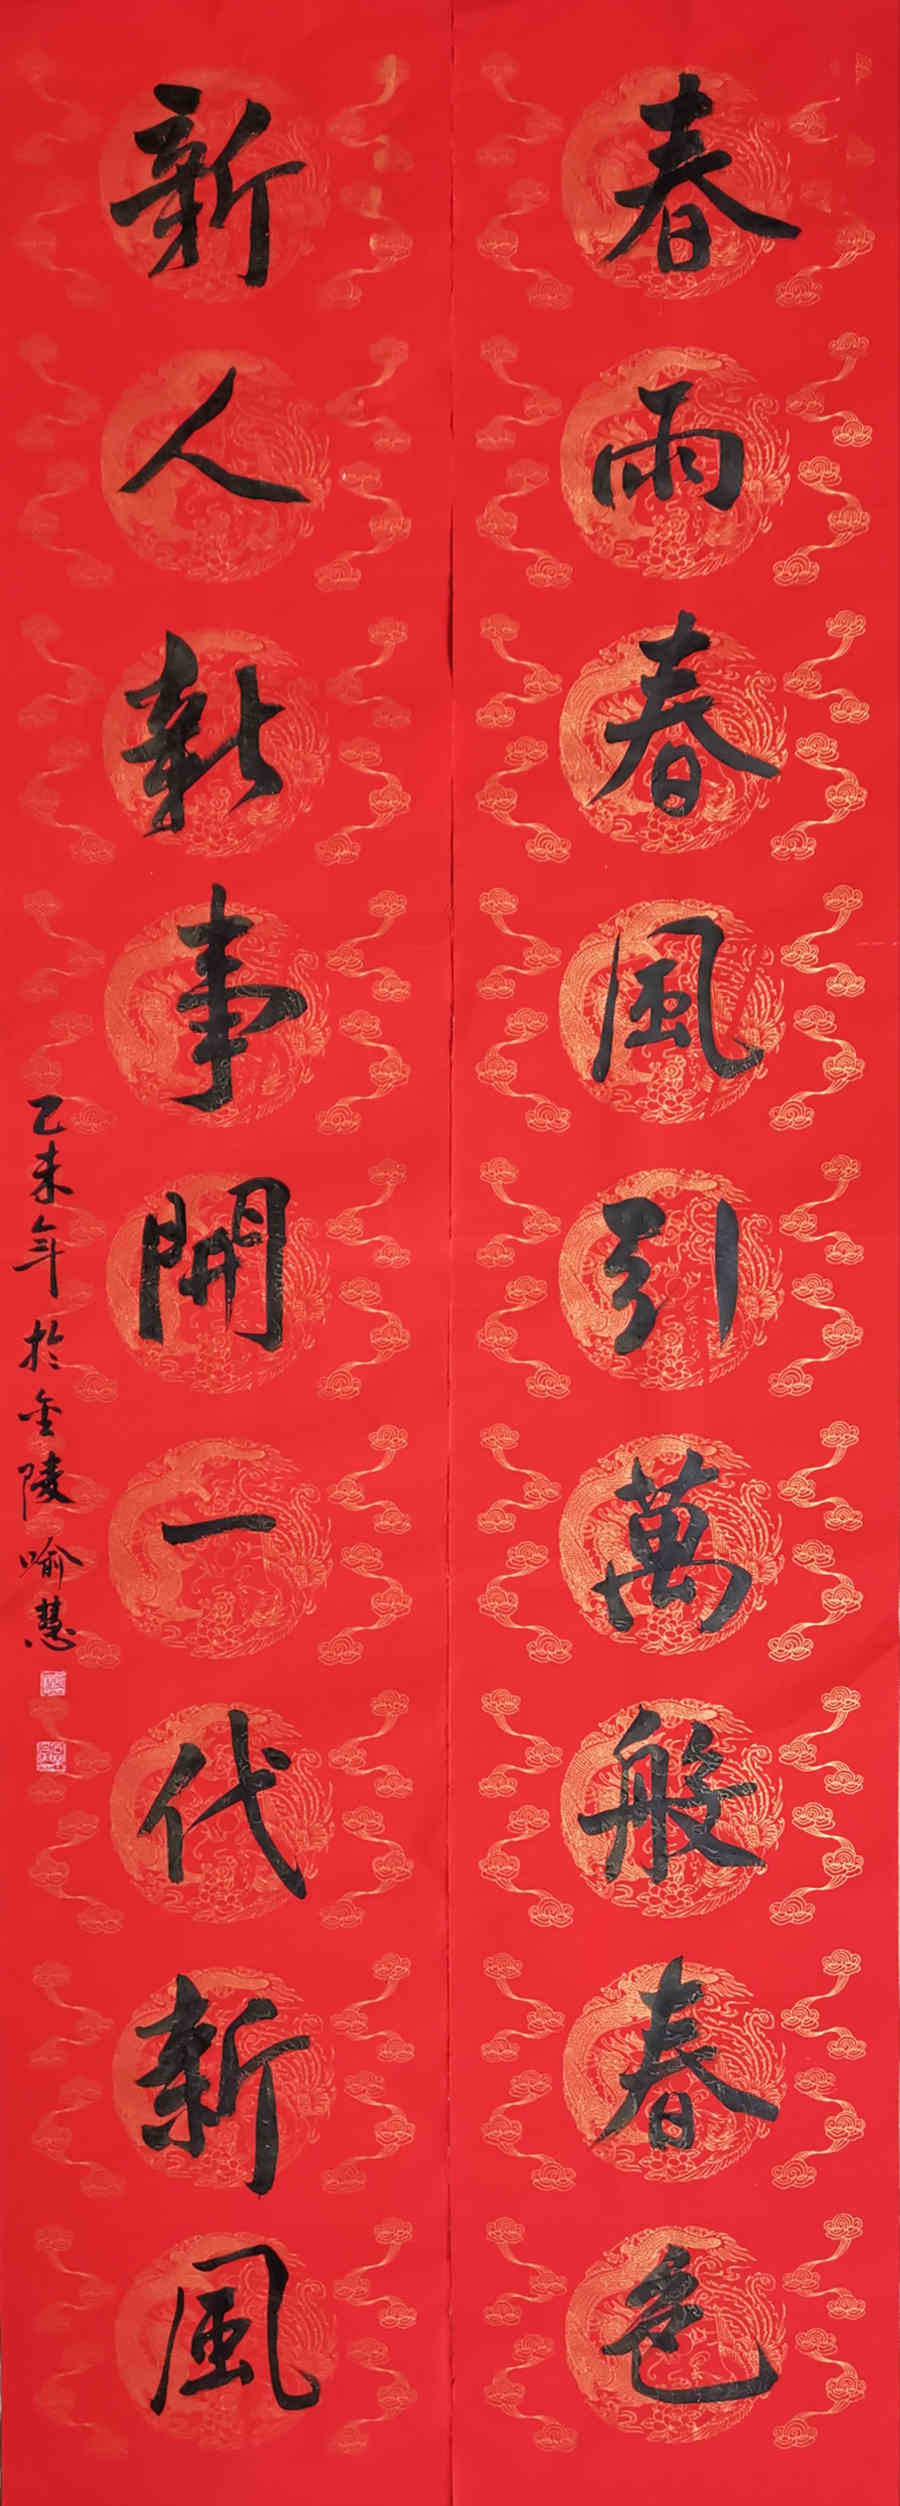 春雨春風引萬般春色
新人新事開一代新風
乙未年於金陵喻慧